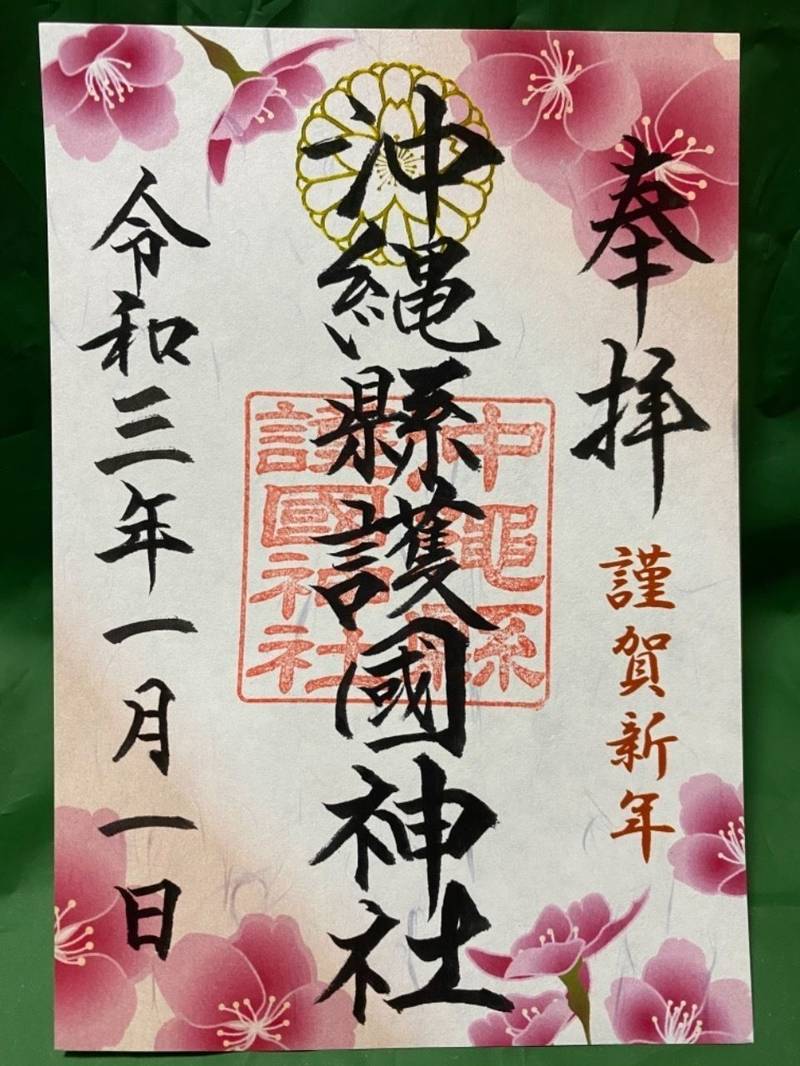 奉拝
謹賀新年
沖縄縣護國神社
沖縄縣
護國神社
令和三年一月一日